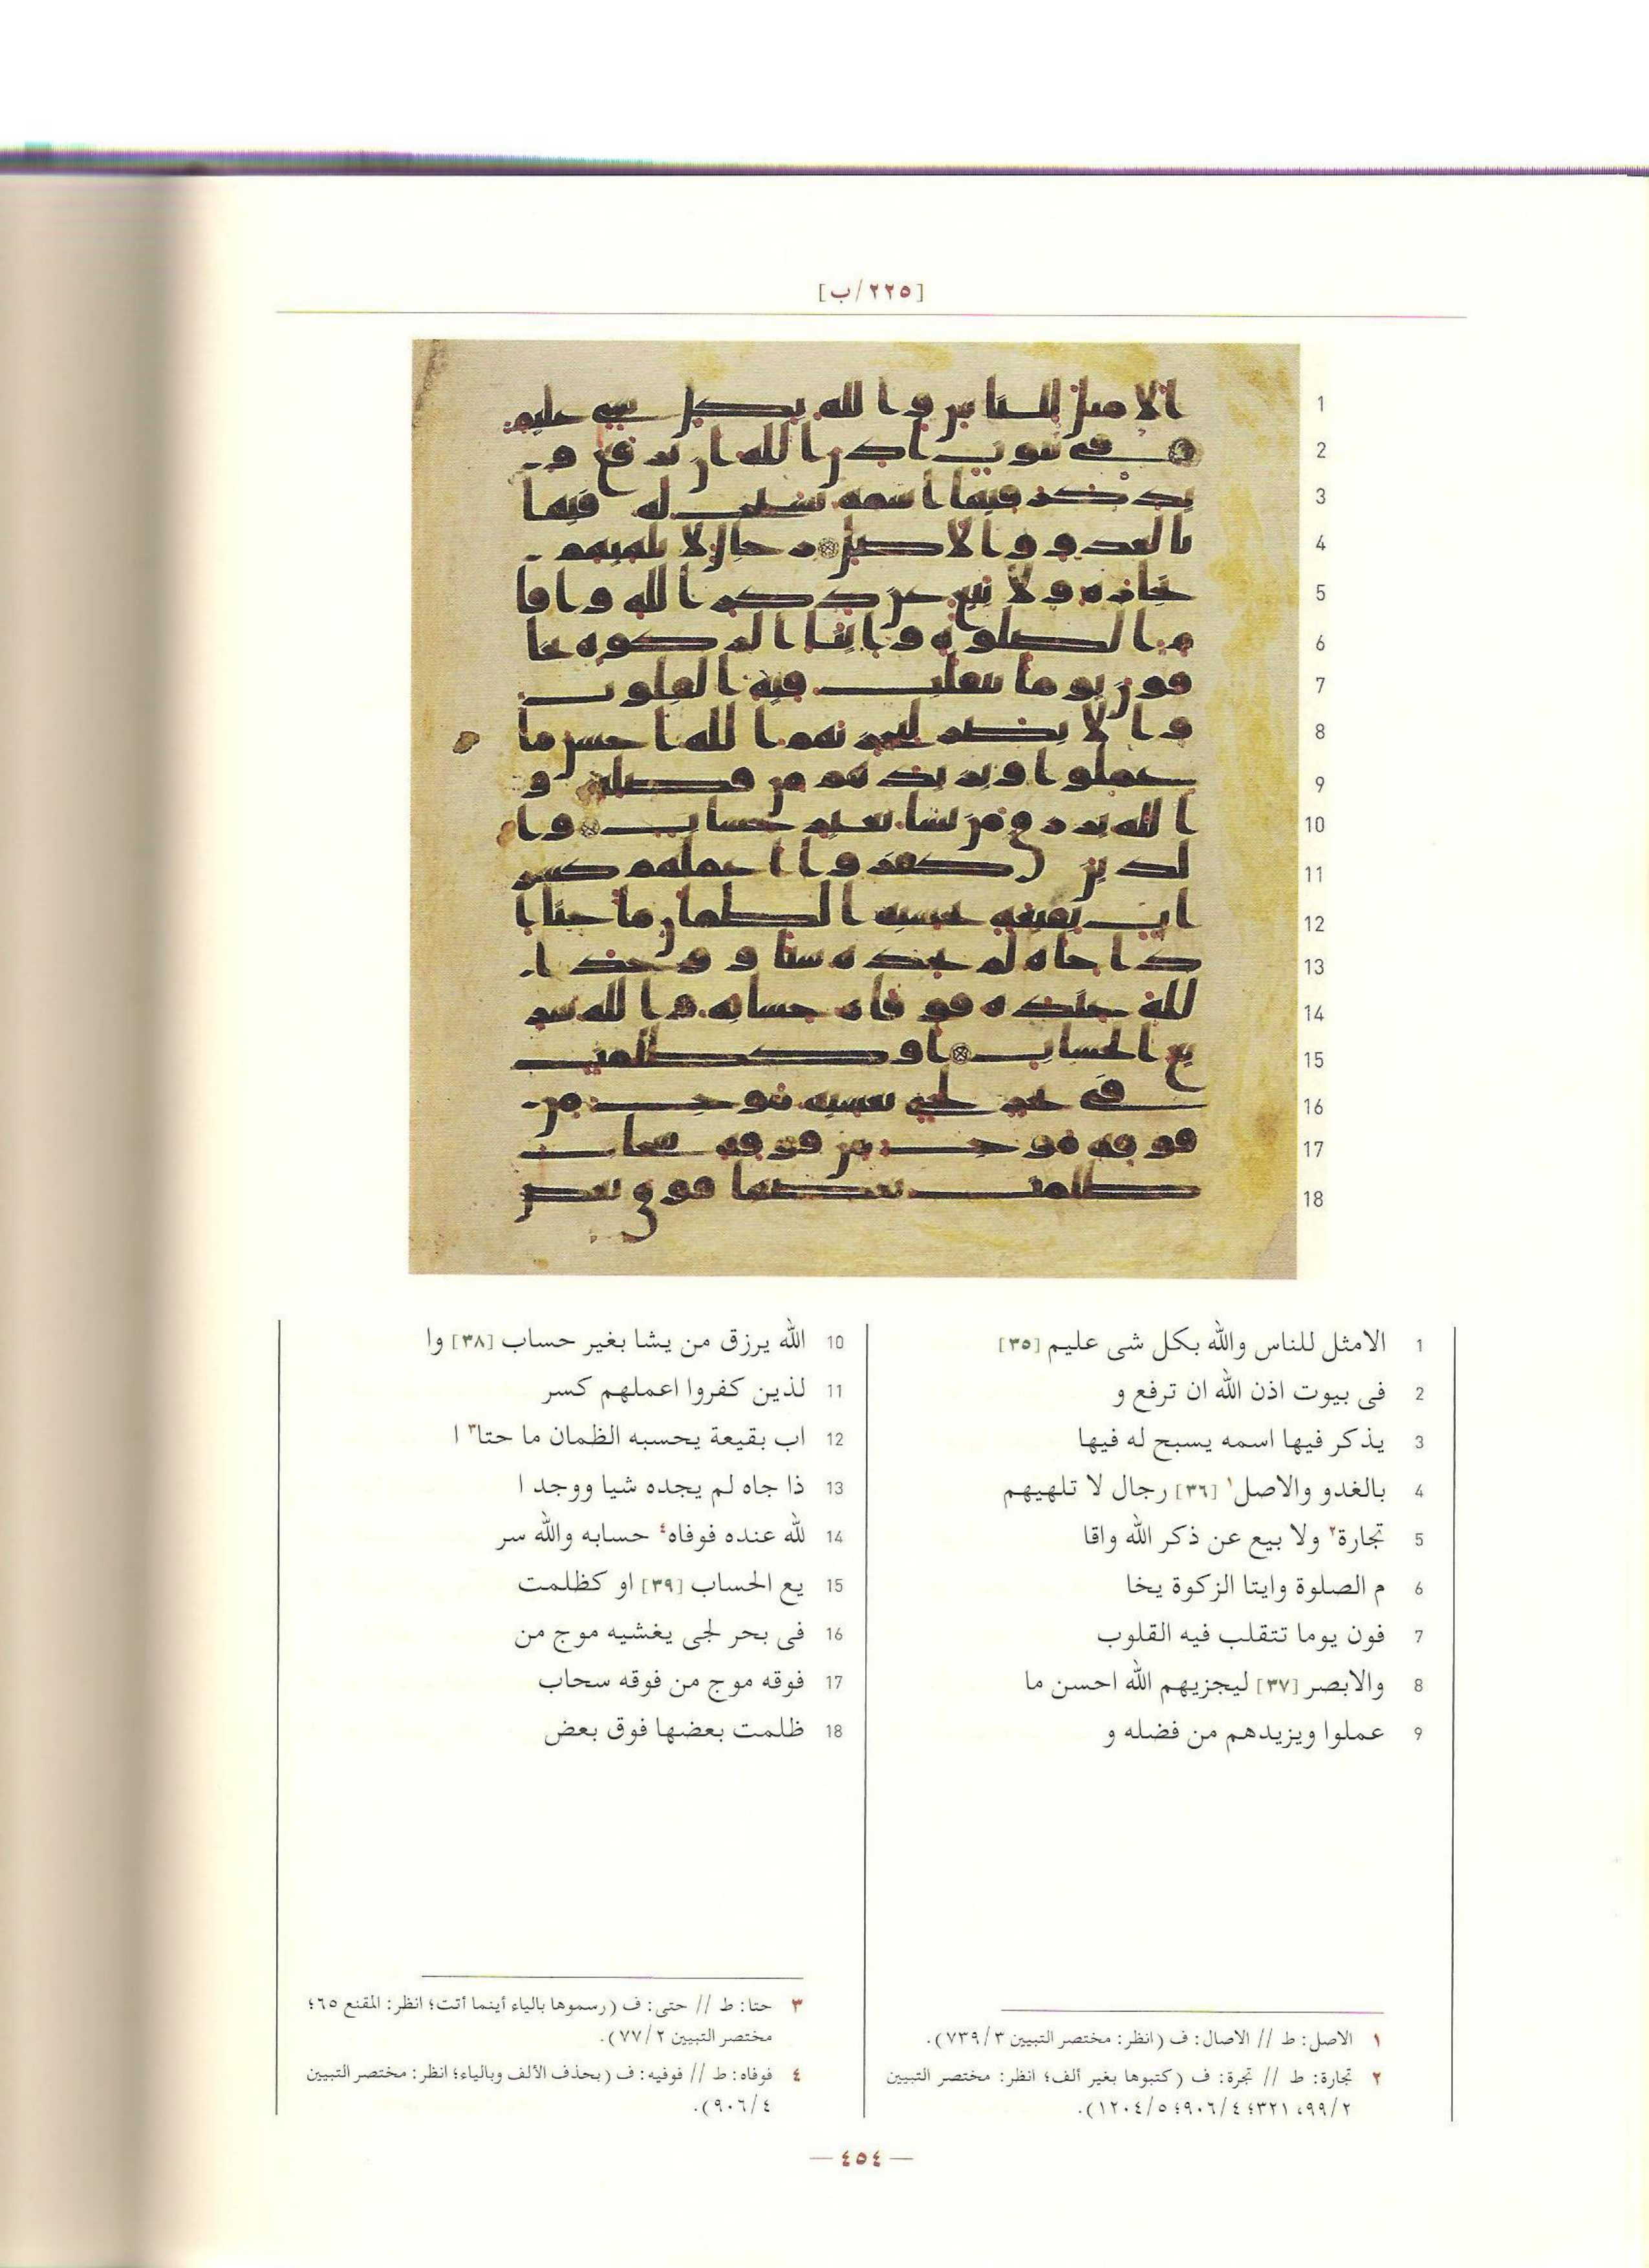 [٢٢٥/ب]
1 الامثل للناس والله بكل شى عليم [٣٥]
2 فى بيوت اذن الله ان ترفع و
3 يذكر فيها اسمه يسبح له فيها
4 بالغدو والاصل١ [٣٦] رجال لا تلهيهم
5 تجارة٢ ولا بيع عن ذكر الله واقا
6 م الصلوة وايتا الزكوة يخا
7 فون يوما تتقلب فيه القلوب
8 والابصر [٣٧] ليجزيهم الله احسن ما
9 عملوا ويزيدهم من فضله و
10 الله يرزق من يشا بغير حساب [٣٨] وا
11 لذين كفروا اعملهم كسر
12 اب بقيعة يحسبه الظمان ما حتا٣ ا
13 ذا جاه لم يجده شيا ووجد ا
14 لله عنده فوفاه٤ حسابه والله سر
15 يع الحساب [٣٩] او كظلمت
16 فى بحر لجى يغشيه موج من
17 فوقه موج من فوقه سحاب
18 ظلمت بعضها فوق بعض
١ الاصل: ط // الاصال: ف (انظر: مختصر التبيين ٣/٧٣٩).
٢ تجارة: ط // تجرة: ف (كتبوها بغير ألف؛ انظر: مختصر التبيين
٢/٩٩، ٣٢١؛ ٤/٩٠٦؛ ٥/١٢٠٤).
٣ حتا: ط // حتى: ف (رسموها بالياء أينما أتت؛ انظر: المقنع ٦٥؛
مختصر التبيين ٢/٧٧).
٤ فوفاه: ط // فوفيه: ف (بحذف الألف وبالياء؛ انظر: مختصر التبيين
٤/٩٠٦).
— ٤٥٤ —